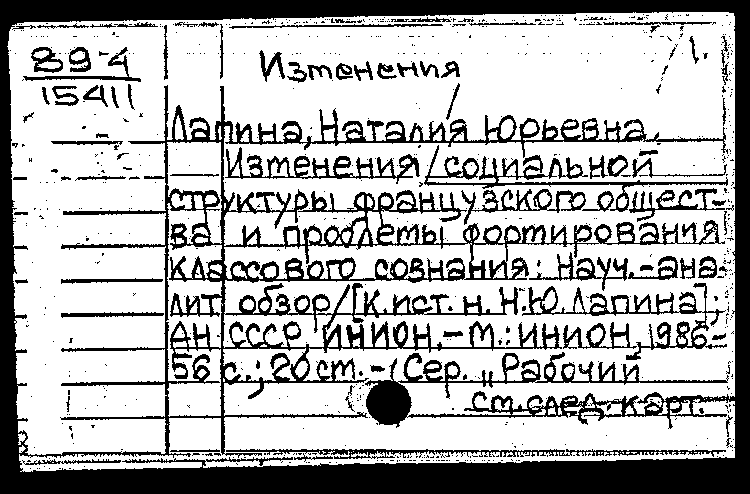 89-4
15411
Изменения
1.
Лапина, Наталия Юрьевна.
Изменения социальной
структуры французского общест-
ва и проблемы формирования
классового сознания: Науч.-ана-
лит. обзор/[К.ист. н. Н.Ю.Лапина];
АН СССР, ИНИОН.-М.: ИНИОН, 1986.-
56 с.; 20 см. -(Сер. „Рабочий
См. след. карт.